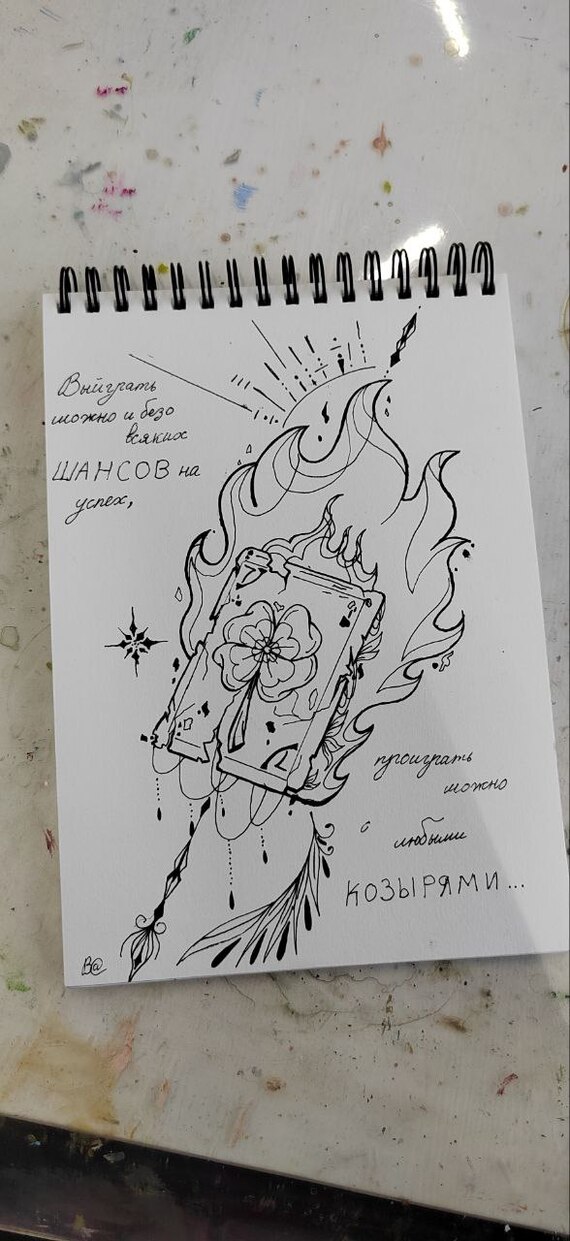 Выйграть
можно и безо
всяких
ШАНСОВ на
успех,
проиграть
можно
с любыми
КОЗЫРЯМИ...
В@